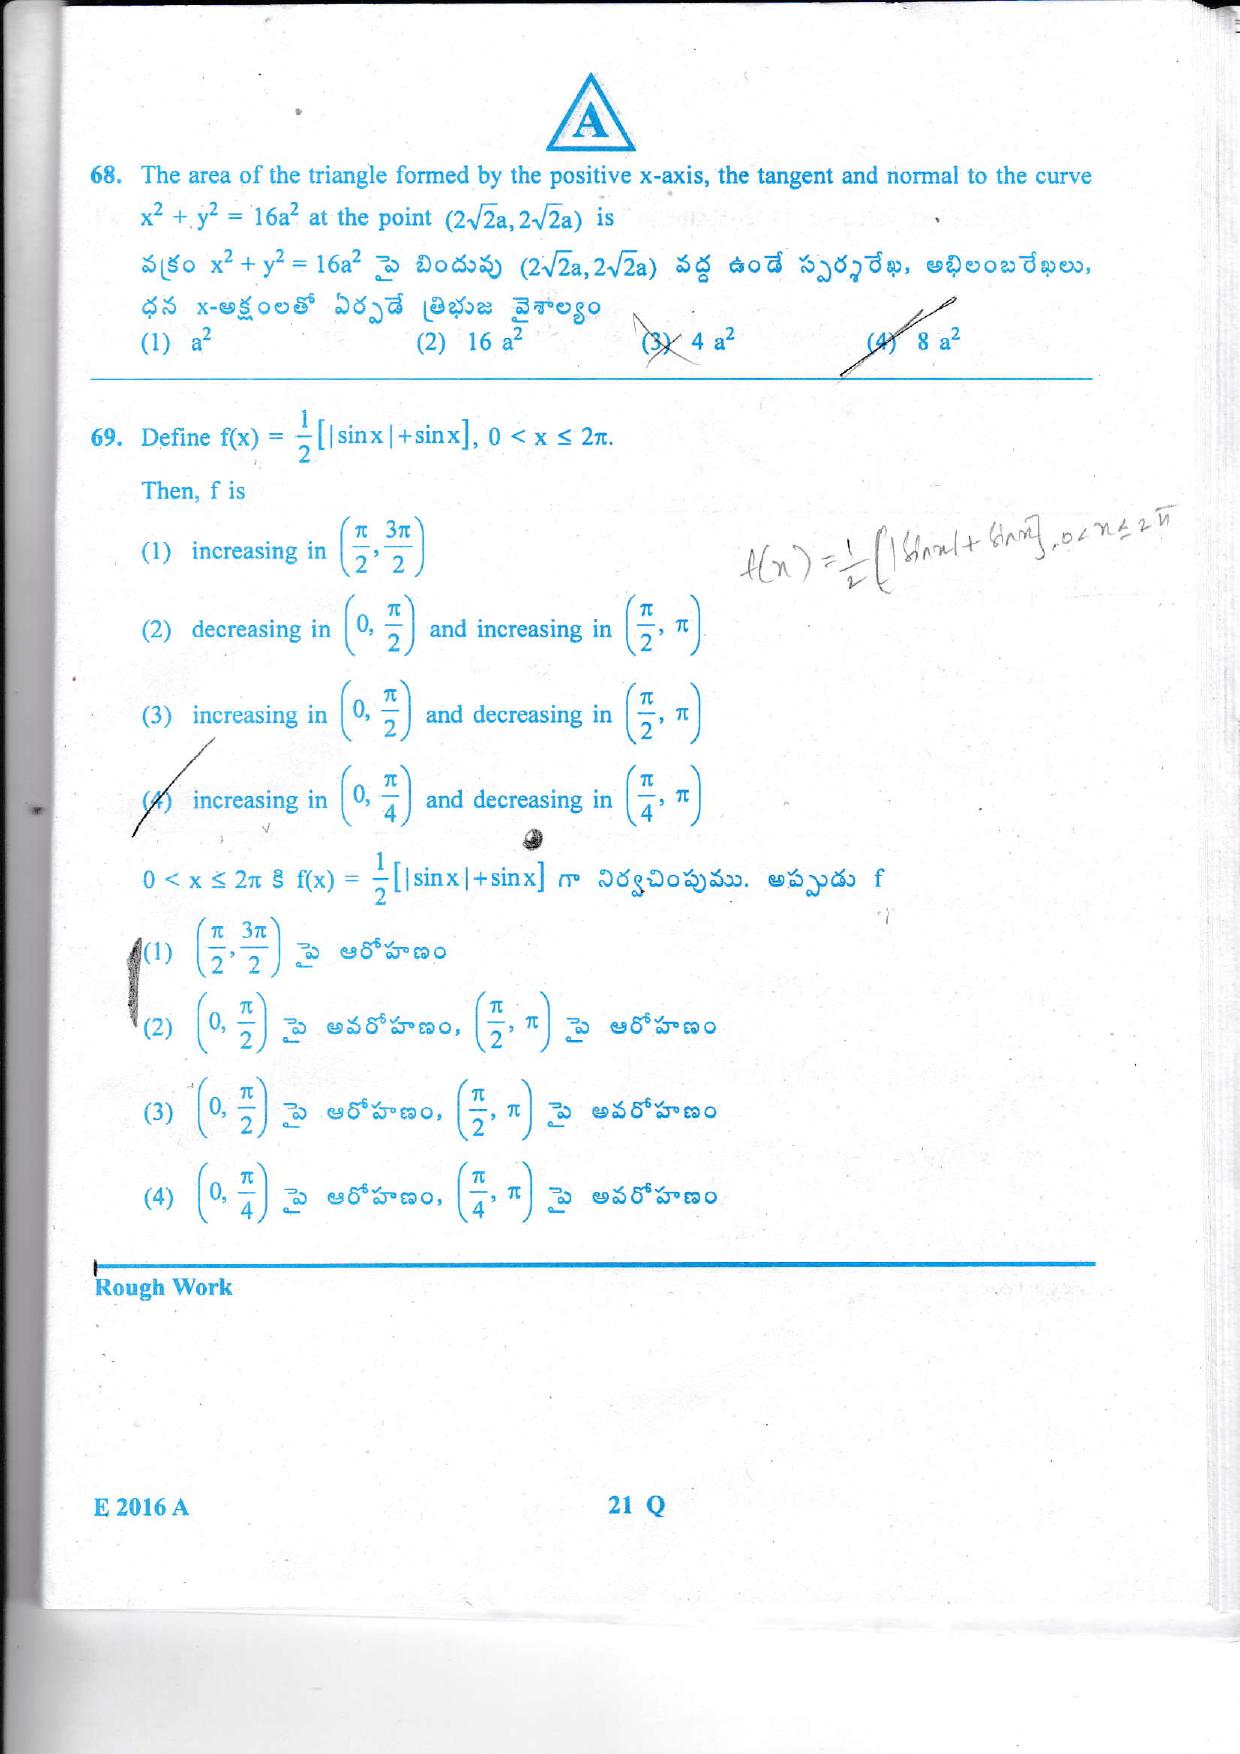 A
68. The area of the triangle formed by the positive x-axis, the tangent and normal to the curve
x² + y² = 16a² at the point (2√2a, 2√2a) is
వక్రం x² + y² = 16a² పై బిందువు (2√2a, 2√2a) వద్ద ఉండే స్పర్శరేఖ, అభిలంబరేఖలు,
ధన x-అక్షంలతో ఏర్పడే త్రిభుజ వైశాల్యం
(1) a² (2) 16 a² (3) 4 a² (4) 8 a²
69. Define f(x) = 1/2 [|sinx|+sinx], 0 < x ≤ 2π.
Then, f is
(1) increasing in (π/2, 3π/2)
f(x) = 1/2 [|sinx|+ sinx], 0 < x ≤ 2π
(2) decreasing in (0, π/2) and increasing in (π/2, π)
(3) increasing in (0, π/2) and decreasing in (π/2, π)
(4) increasing in (0, π/4) and decreasing in (π/4, π)
0 < x ≤ 2π కి f(x) = 1/2 [|sinx|+sinx] గా నిర్వచింపుము. అప్పుడు f
(1) (π/2, 3π/2) పై ఆరోహణం
(2) (0, π/2) పై అవరోహణం, (π/2, π) పై ఆరోహణం
(3) (0, π/2) పై ఆరోహణం, (π/2, π) పై అవరోహణం
(4) (0, π/4) పై ఆరోహణం, (π/4, π) పై అవరోహణం
Rough Work
E 2016 A 21 Q